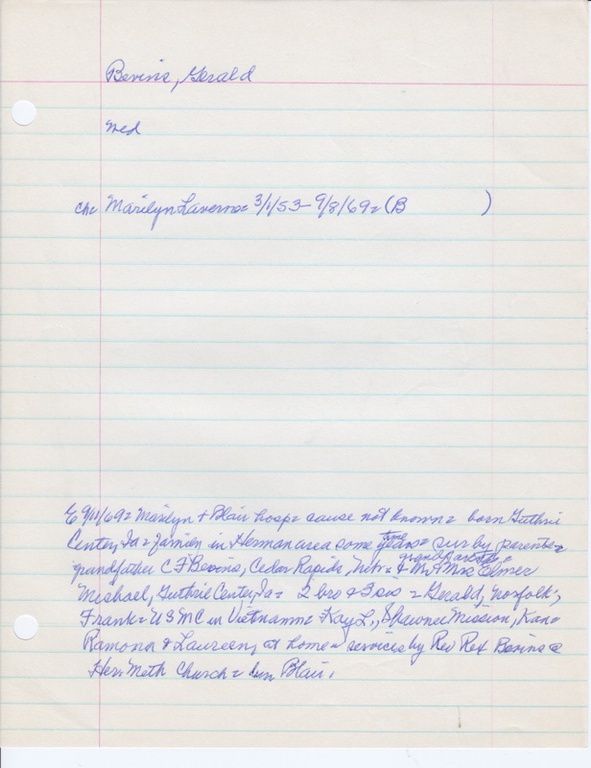 Bevins, Gerald
med
ch= Marilyn Laverne= 3/1/53- 9/8/69= (B )
E 9/11/69= Marilyn + Blair hosp= cause not known= born Guthrie
Center, Ia= family in Herman area some time= sur by parents=
grandparents=
grandfather C F Bevins, Cedar Rapids, Nebr= & Mr & Mrs Elmer
Michael, Guthrie Center, Ia= 2 bro & 3 sis= Gerald, Norfolk;
Frank= USMC in Vietnam= Kay L., Shawnee Mission, Kan=
Ramona & Laureen, at home= services by Rev Rex Bevins @
Her. Meth Church= bur Blair.